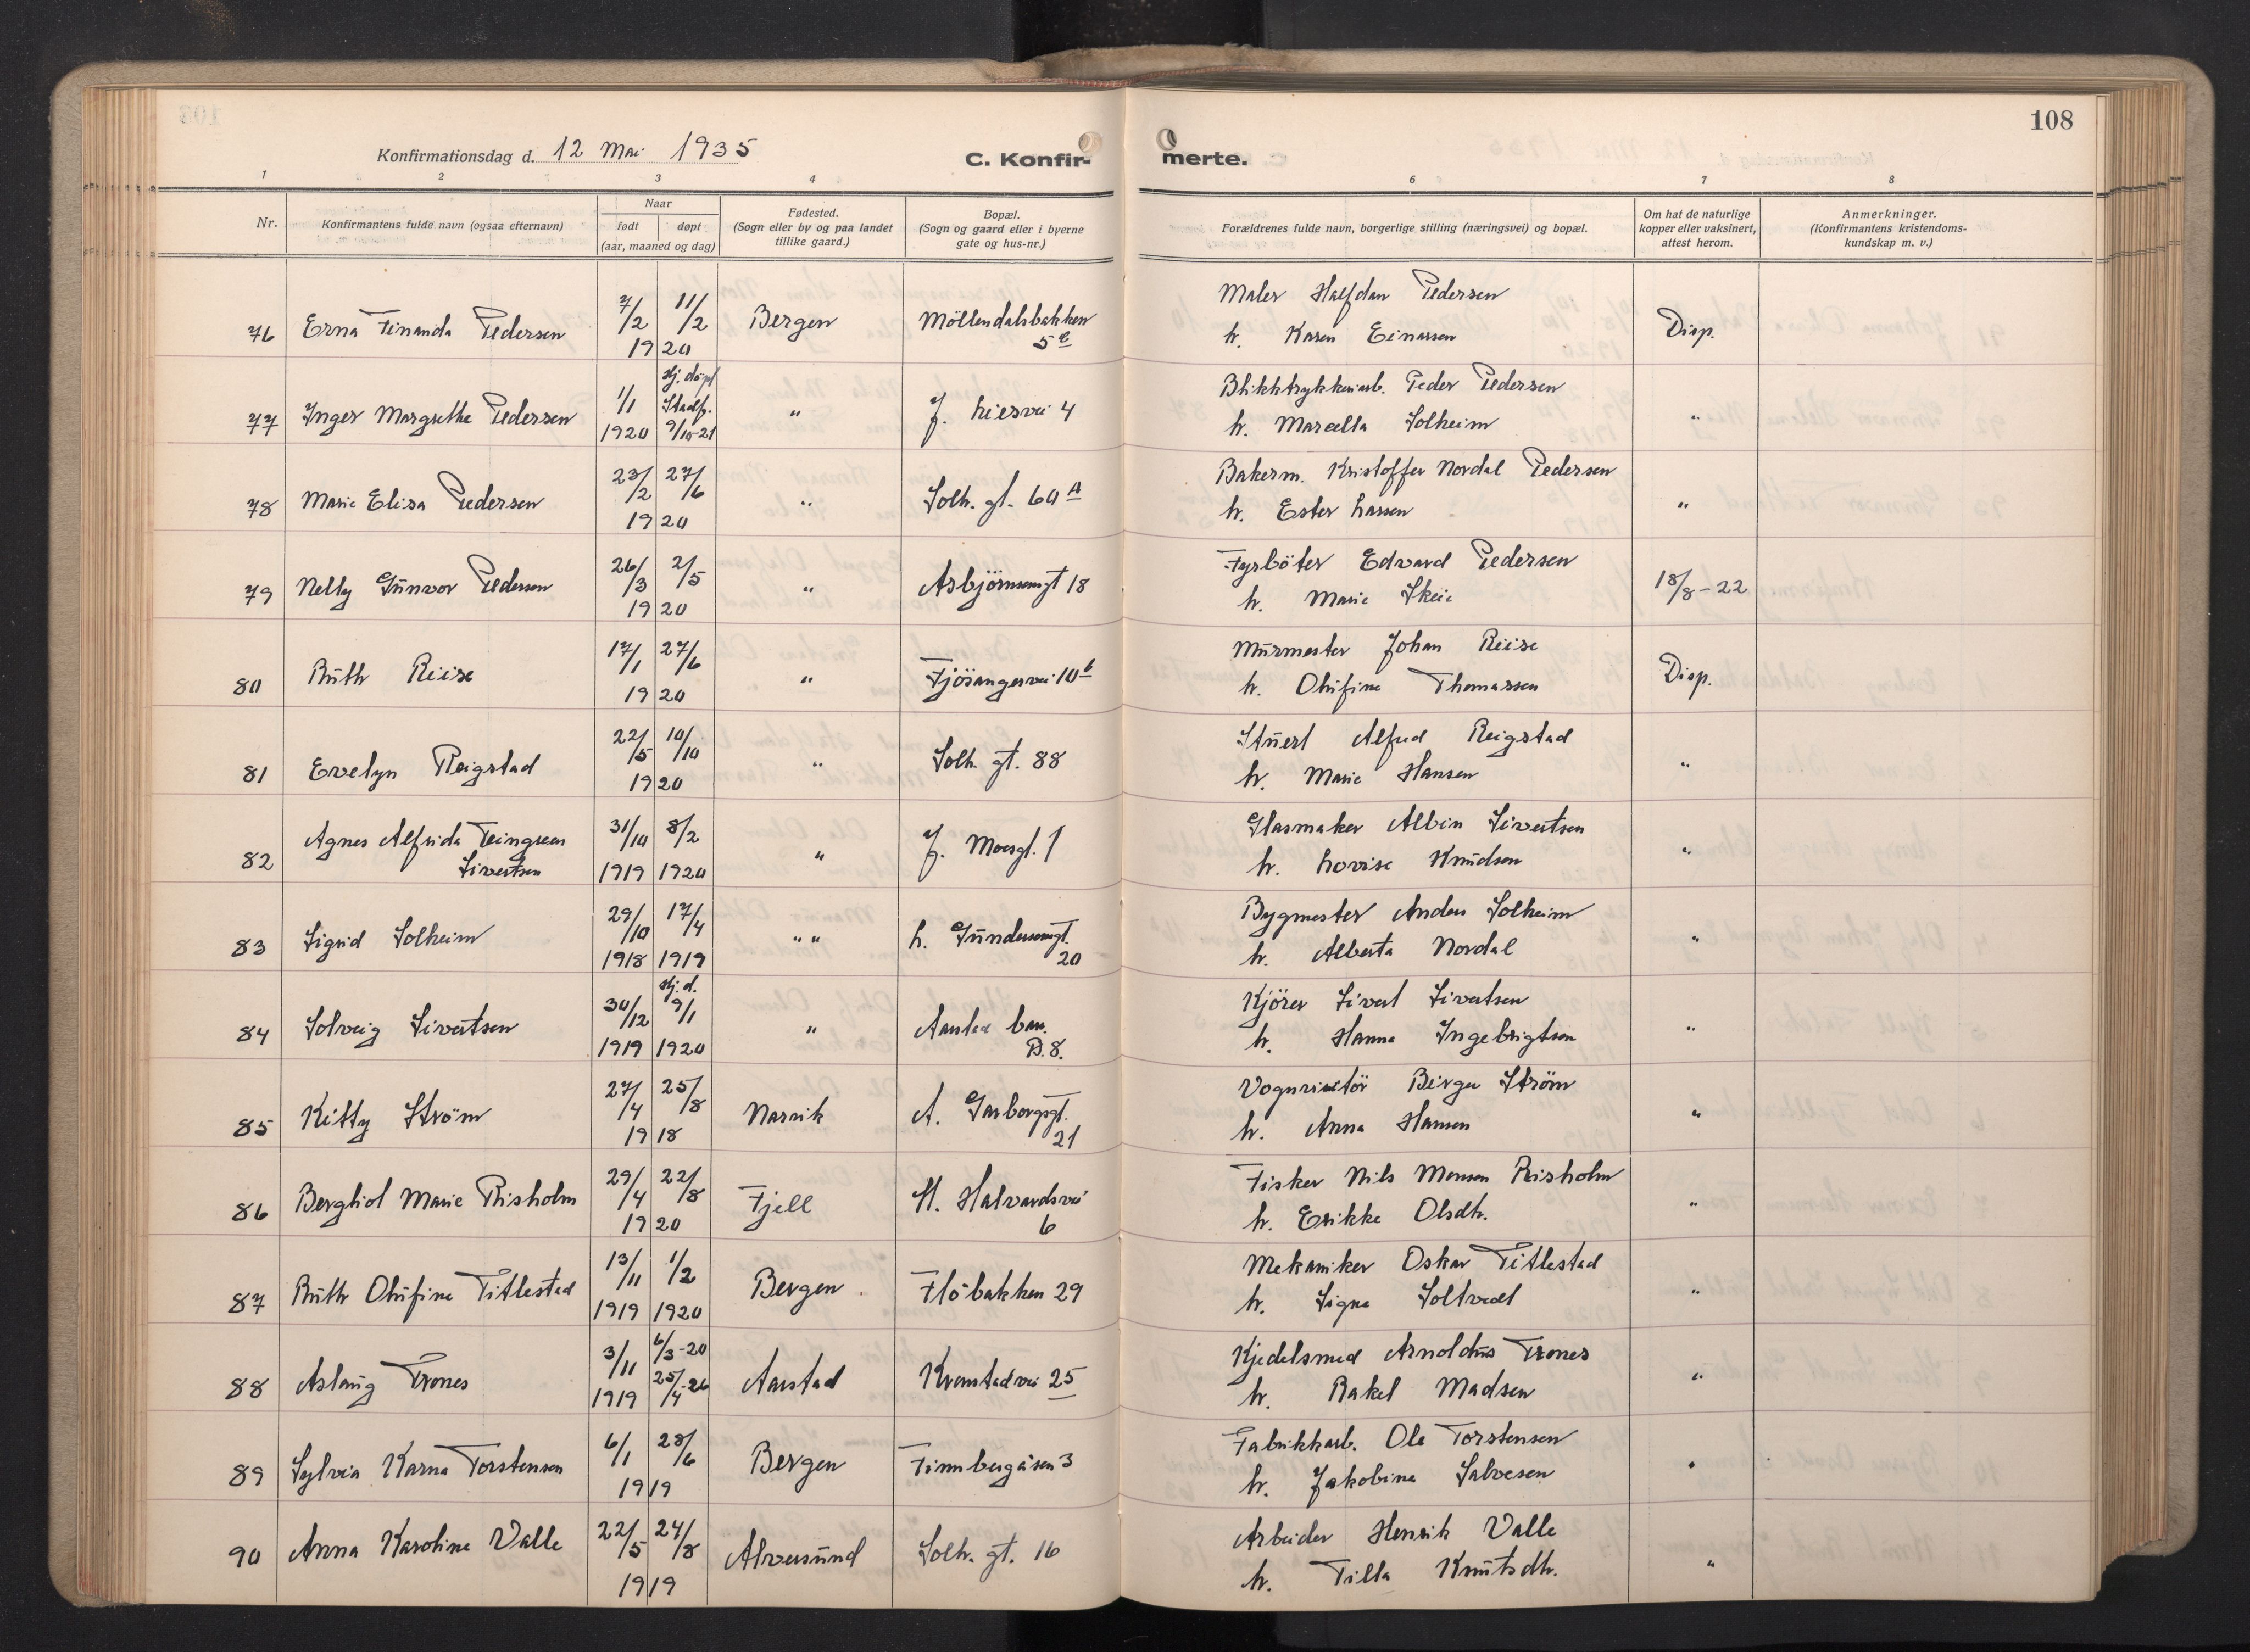 108
Konfirmationsdag d. 12 Mai 1935
C. Konfir-
merte.
1 2 3 4 5 6 7 8
Nr.
Konfirmantens fulde navn (ogsaa efternavn)
Naar
født døpt
(aar, maaned og dag)
Fødested.
(Sogn eller by og paa landet
tillike gaard.)
Bopæl.
(Sogn og gaard eller i byerne
gate og hus-nr.)
Forældrenes fulde navn, borgerlige stilling (næringsvei) og bopæl.
Om hat de naturlige
kopper eller vaksinert,
attest herom.
Anmerkninger.
(Konfirmantens kristendoms-
kundskap m. v.)
7/2 11/2 Maler Halfdan Pedersen
76 Erna Finanda Pedersen Bergen Möllendalsbakken Disp.
1920 5 h. Karen Einarsen
Hj. döpt
1/1 Stadf. Blikktrykkeriarb. Peder Pedersen
77 Inger Margrethe Pedersen " J. Liesvei 4 "
1920 9/10-21 h. Marcella Solheim
23/2 27/6 Bakerm. Kristoffer Nordal Pedersen
78 Marie Elisa Pedersen " Solh. gt. 60A "
1920 h. Ester Larsen
26/3 2/5 Fyrböter Edvard Pedersen
79 Nelly Gunvor Pedersen " Asbjörnsensgt 18 18/8-22
1920 h. Marie Skeie
17/1 27/6 Murmester Johan Reise
80 Ruth Reise " Fjösangervei 10b Disp.
1920 h. Olufine Thomassen
22/5 10/10 Stuert Alfred Reigstad
81 Evelyn Reigstad " Solh. gt. 88 "
1920 h. Marie Hansen
Agnes Alfrida 31/10 8/2 Glasmaker Albin Sivertsen
82 Sivertsen " J. Moesgt. 1 "
1919 1920 h. Lovise Knudsen
29/10 17/4 Bygmester Anders Solheim
83 Sigrid Solheim " " L. Gundersensgt. "
1918 1919 20 h. Alberta Nordal
Hj. d.
30/12 9/1 Kjörer Sivert Sivertsen
84 Solveig Sivertsen " Aarstad bar. "
1919 1920 B. 8. h. Hanna Ingebrigtsen
27/4 25/8 Vognvisitör Birger Ström
85 Kitty Ström Narvik A. Garborgsgt. "
1918 21 h. Anna Hansen
29/4 22/8 Fisker Nils Monsen Risholm
86 Bergliot Marie Risholm Fjell St. Halvardsvei "
1920 6 h. Erikke Olsdtr.
13/11 1/2 Mekaniker Oskar Titlestad
87 Ruth Olufine Titlestad Bergen Flöbakken 29 "
1919 1920 h. Signe Soltvedt
3/11 6/3-20 Kjedelsmed Arnoldus Trones
88 Aslaug Trones Aarstad Kronstadvei 25 "
1919 25/4-26 h. Rakel Madsen
6/1 28/6 Fabrikkarb. Ole Torstensen
89 Sylvia Karna Torstensen Bergen Finnbergåsen 3 "
1919 h. Jakobine Salvesen
22/5 24/8 Arbeider Henrik Valle
90 Anna Karoline Valle Alversund Solh. gt. 16 "
1919 h. Tilla Knutsdtr.